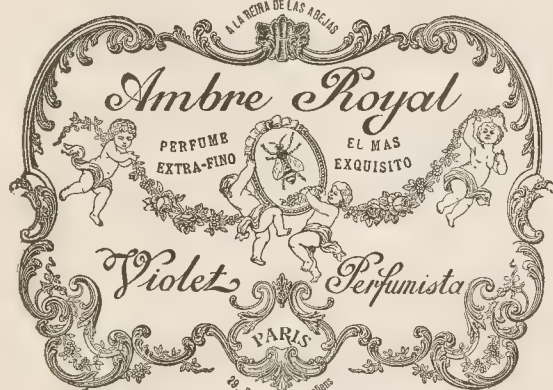 A LA REINA DE LAS ABEJAS
Ambre Royal
PERFUME
EXTRA-FINO
EL MAS
EXQUISITO
Violet Perfumista
PARIS
29